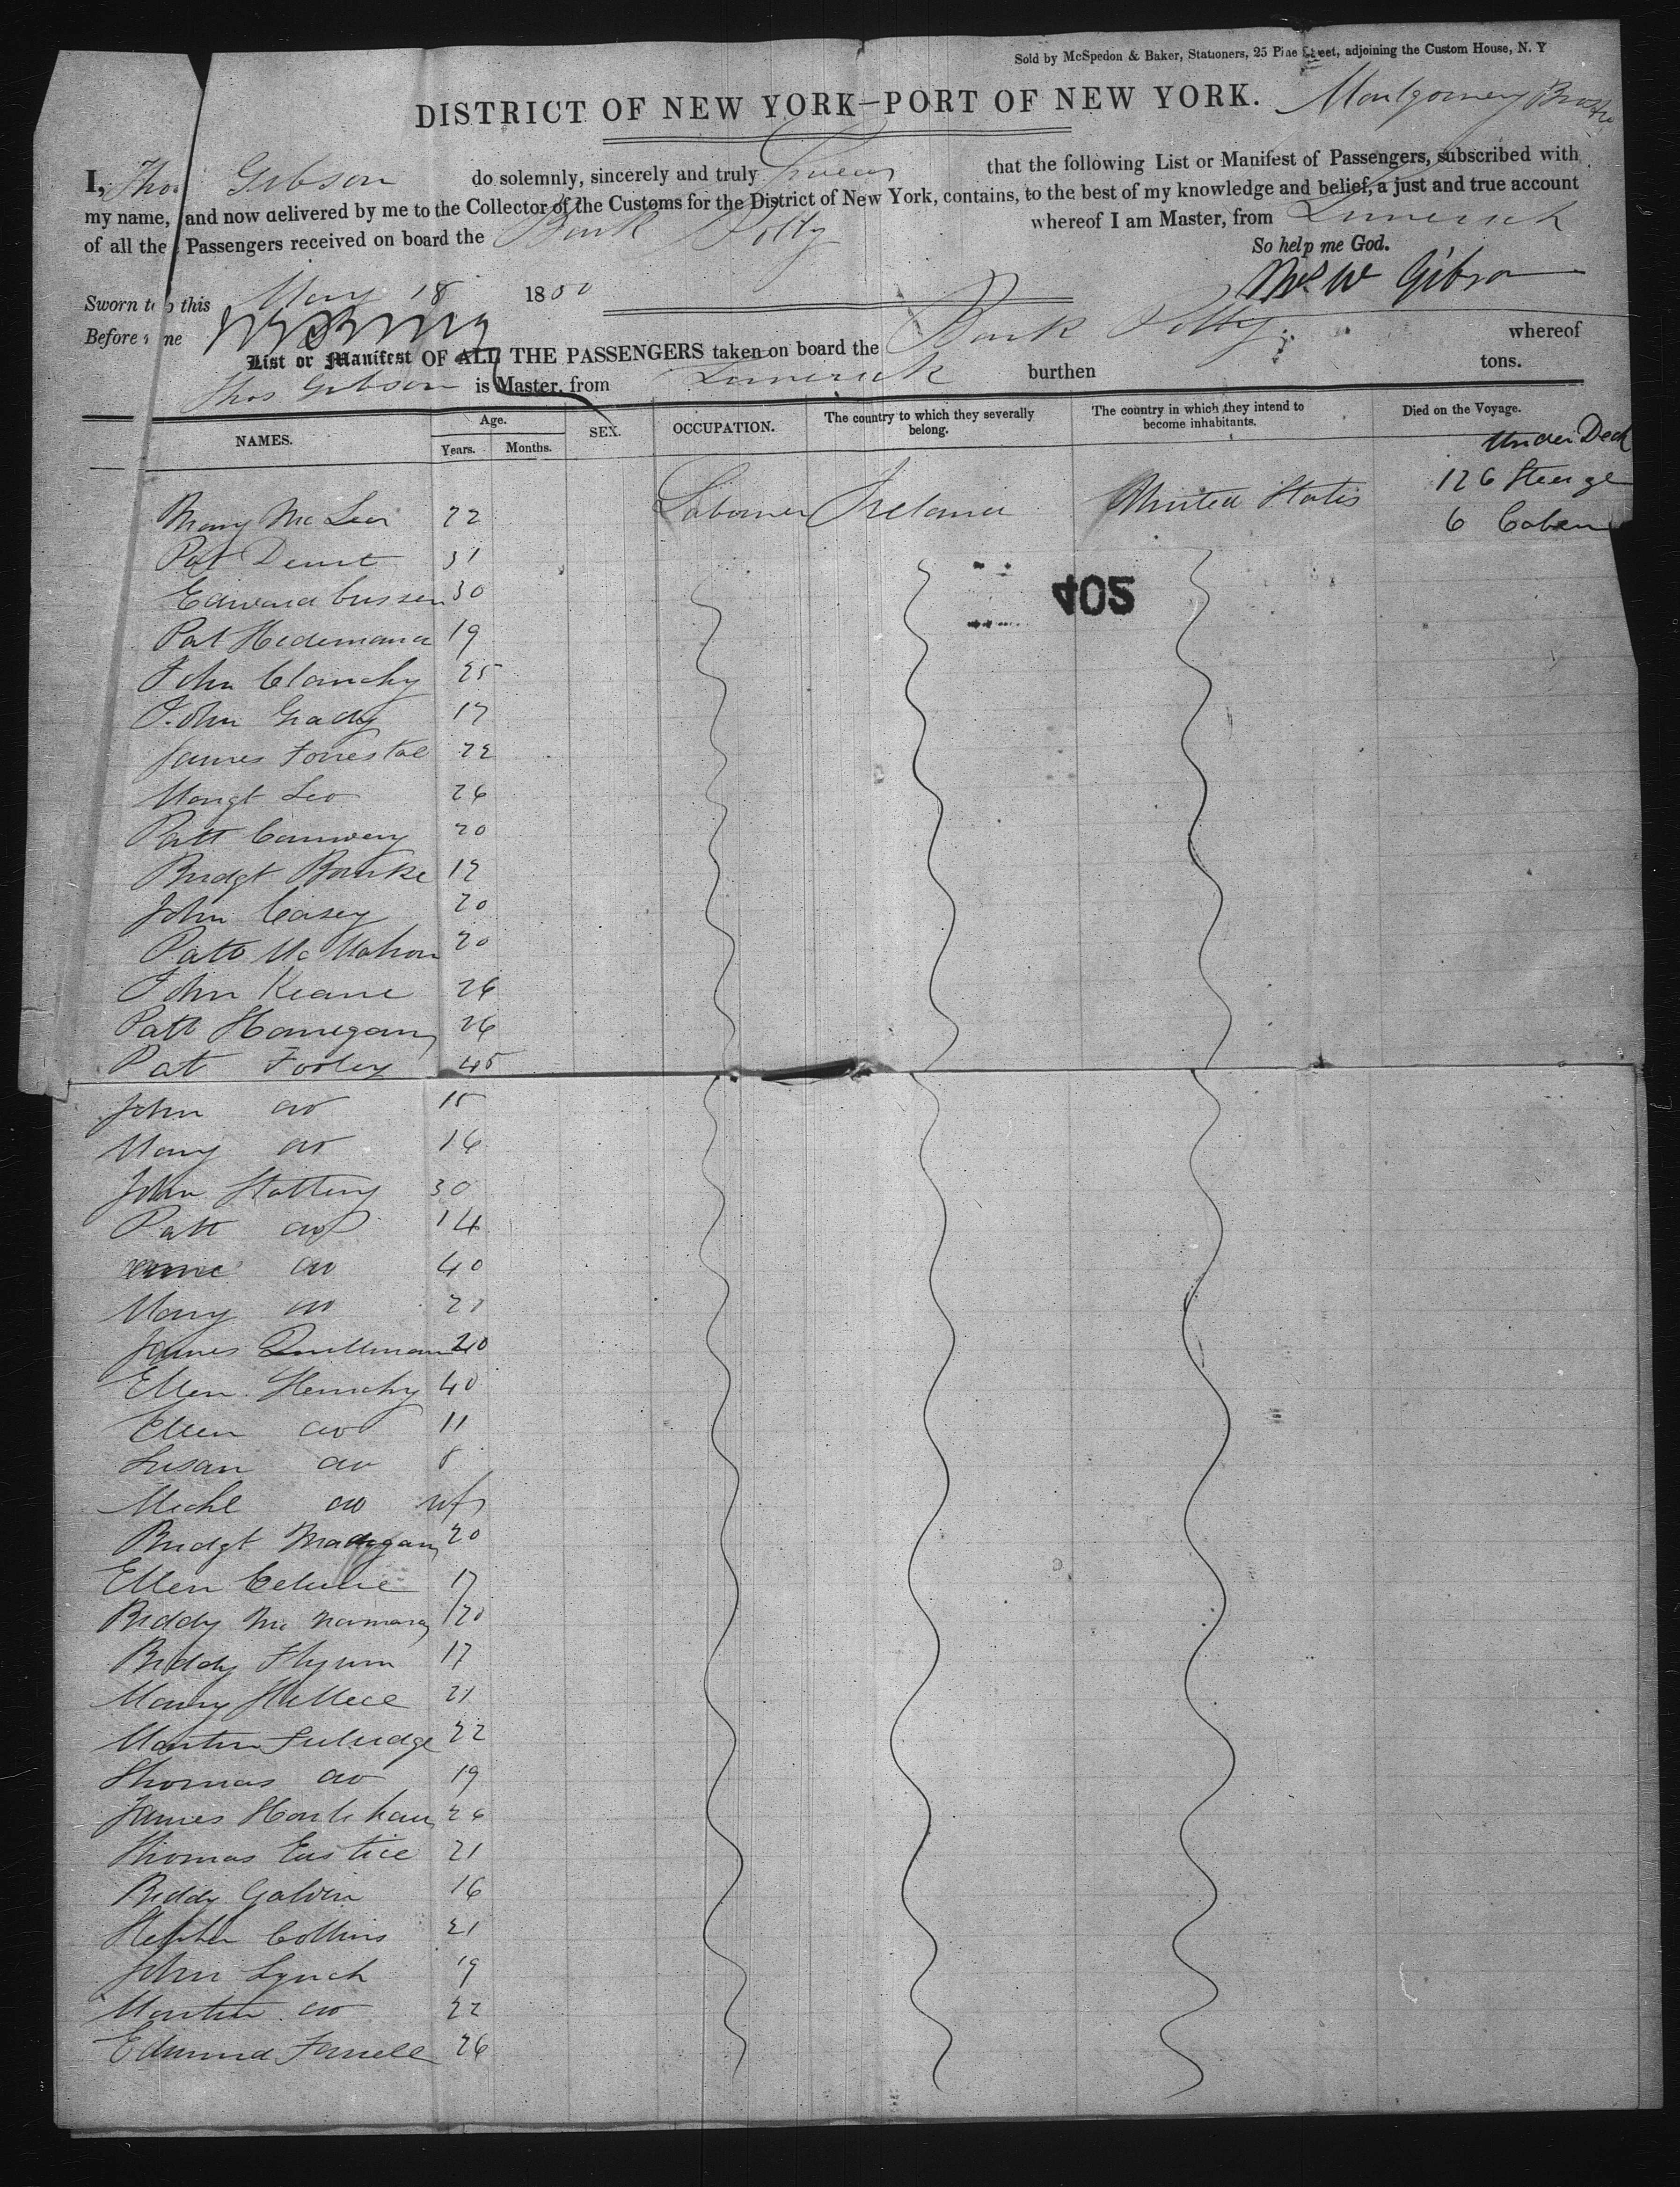 Sold by McSpedon & Baker, Stationers, 25 Pine Street, adjoining the Custom House, N. Y
DISTRICT OF NEW YORK—PORT OF NEW YORK. Montgomery
I, Tho Gibson do solemnly, sincerely and truly Swear that the following List or Manifest of Passengers, subscribed with
my name, and now delivered by me to the Collector of the Customs for the District of New York, contains, to the best of my knowledge and belief, a just and true account
of all the Passengers received on board the Bark Polly whereof I am Master, from Limerick
So help me God.
Sworn to this May 18 1850 Gibson
Before me
List or Manifest OF ALL THE PASSENGERS taken on board the Bark Polly whereof
Thos Gibson is Master, from Limerick burthen tons.
NAMES. Age. Years. Months. SEX. OCCUPATION. The country to which they severally belong. The country in which they intend to become inhabitants. Died on the Voyage.
Under Deck
126 Steerge
6 Caben
Mary Mc 22 Labourer Ireland United States
Pat 31
Edward Cussen 30
Pat 19
John Clanchy 25
405
John Grady 17
James Forrestal 22
Margt Leo 26
Patt 20
Bridgt Bourke 17
John Casey 20
Patt McMahon 20
John Keane 26
Patt Hanegan 26
Pat Fooley 45
John do 15
Mary do 16
John Slattery 30
Patt do 14
do 40
Mary do
James 20
Ellen Henchy 40
Ellen do 11
Susan do 8
Michl do inft
Bridgt Madigan 20
Ellen 17
Biddy McNamara 20
Biddy Flynn 17
Mary 21
Martin 22
Thomas do 19
James Houlehan 26
Thomas Eustice 21
Biddy Galvin 16
Stephen Collins 21
John Lynch 19
Martin do 22
Edmund Farrell 26